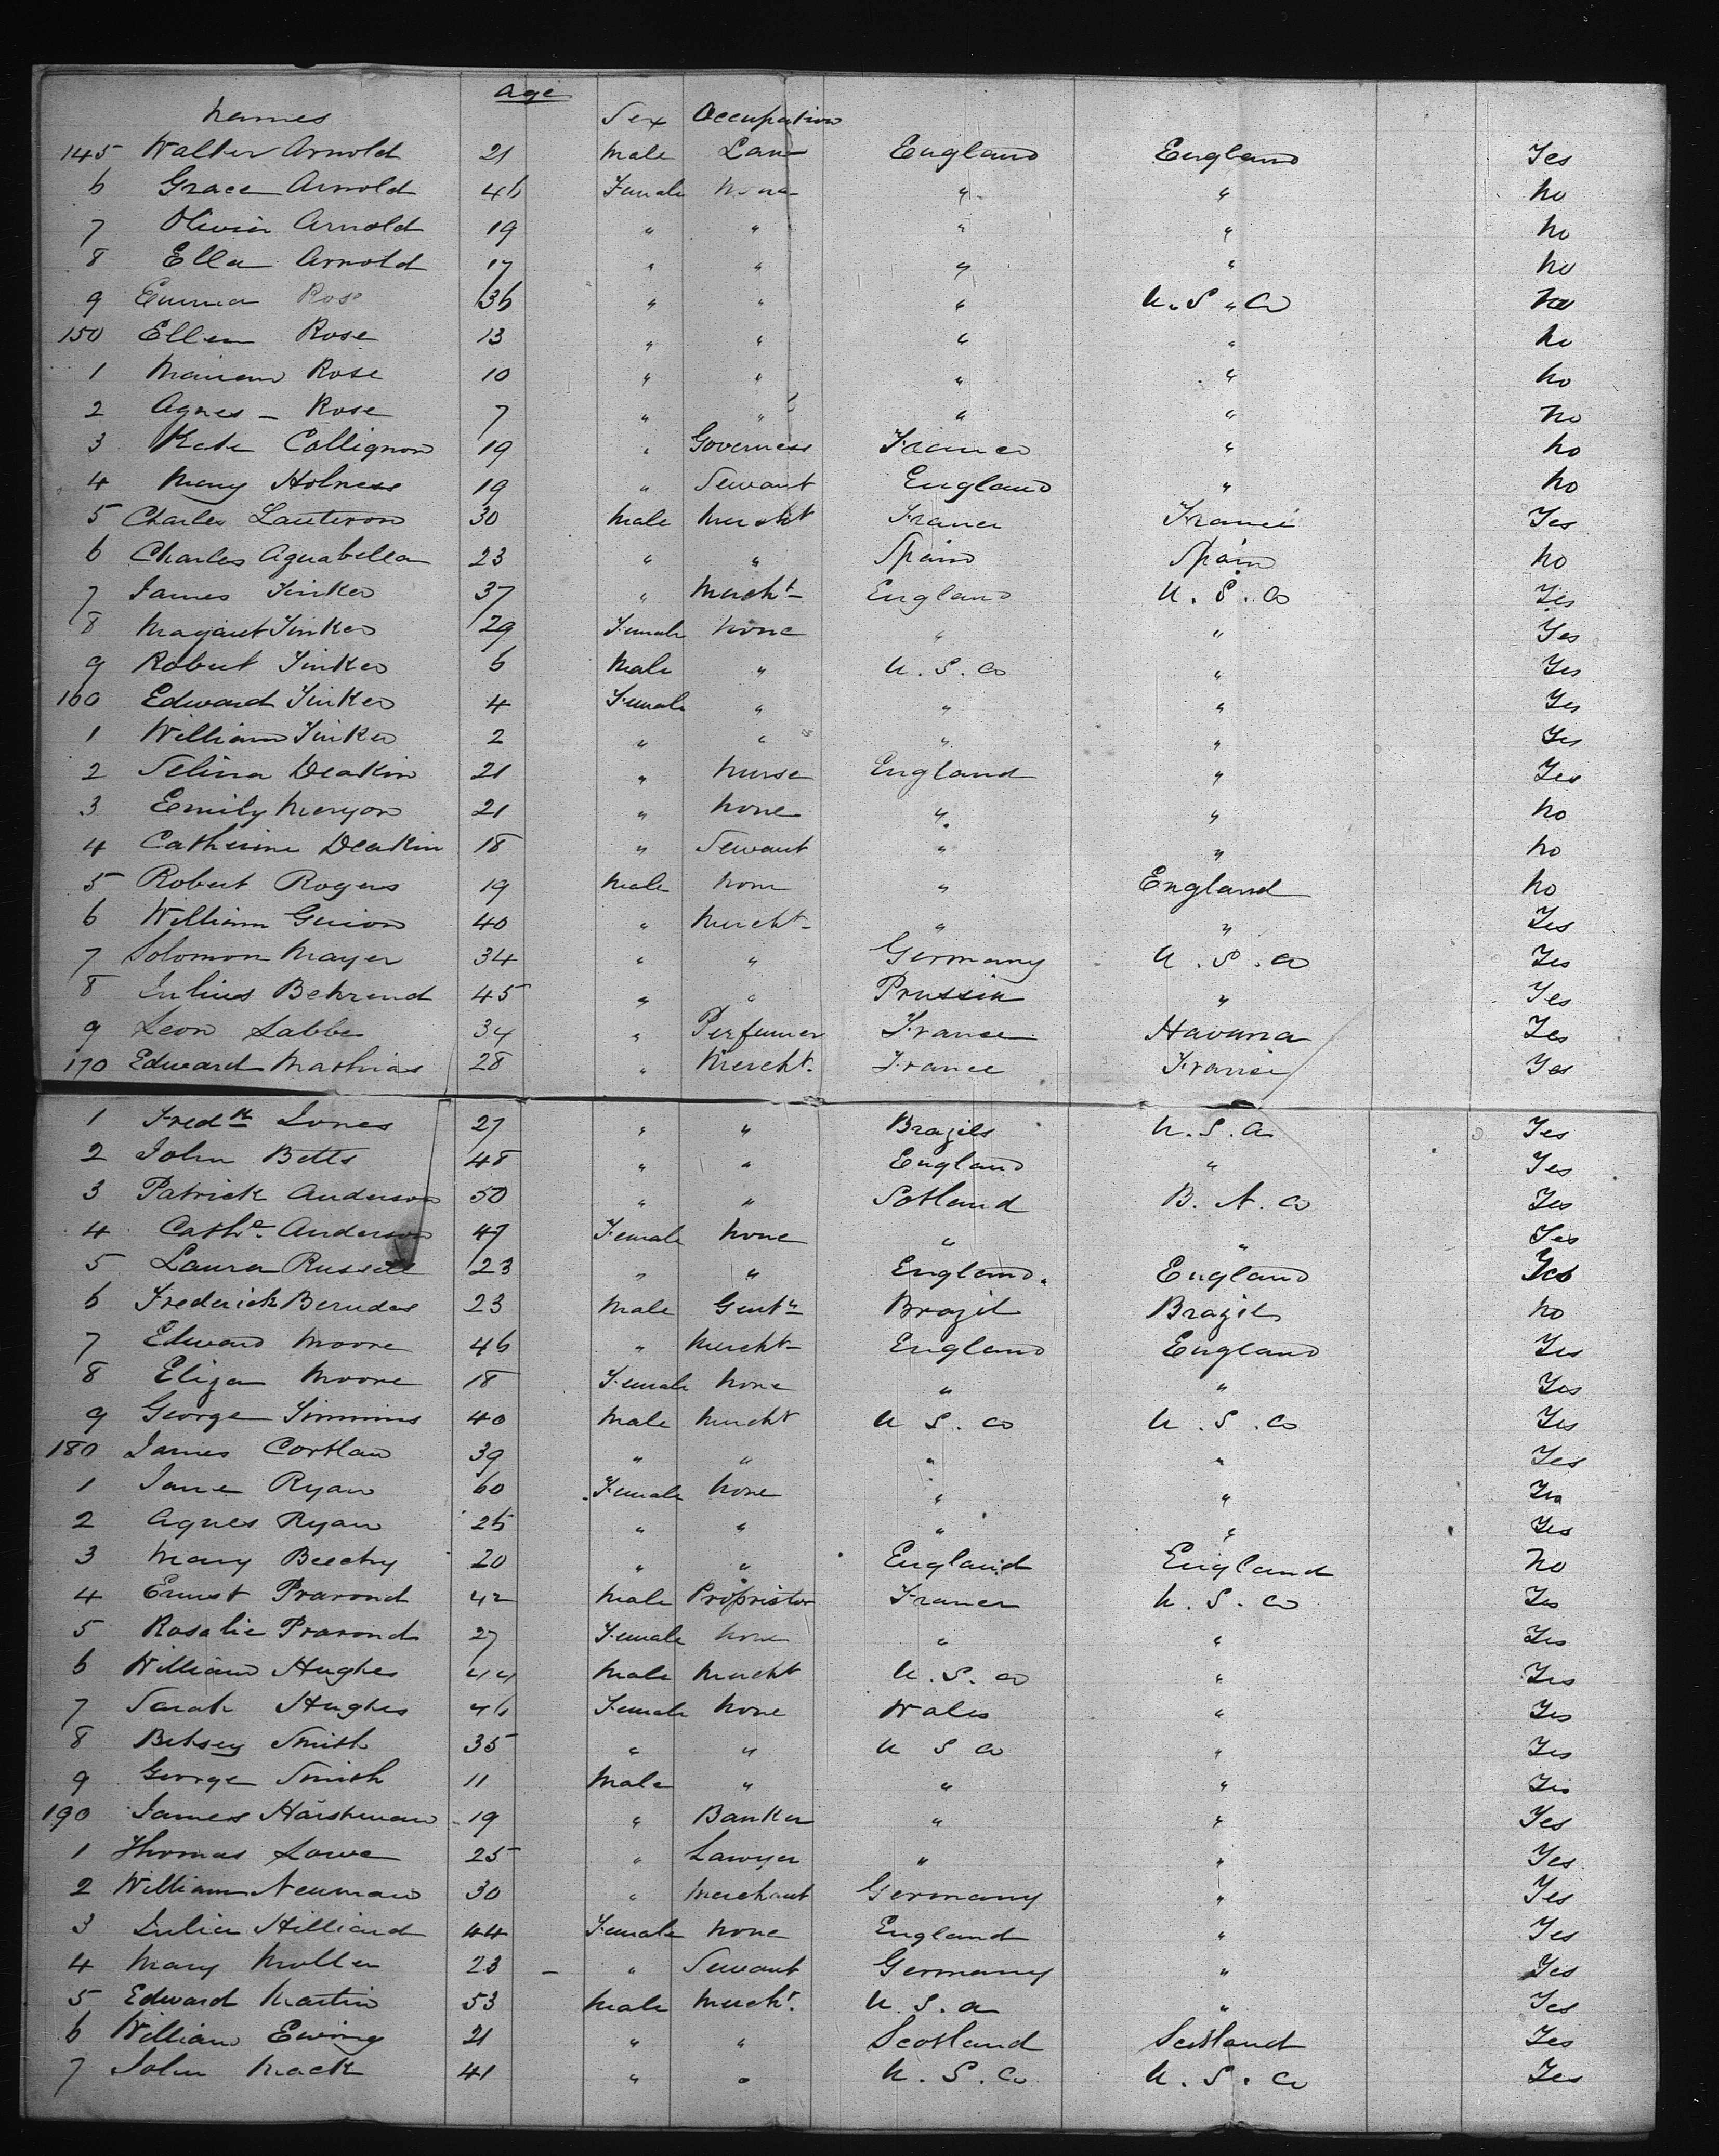 Age
Names Sex Occupation
145 Walter Arnold 21 Male Law England England Yes
6 Grace Arnold 46 Female None " " No
7 Olivia Arnold 19 " " " " No
8 Ella Arnold 17 " " " " No
9 Emma Rose 36 " " " U.S.A No
150 Ellen Rose 13 " " " " No
1 Rose 10 " " " " No
2 Agnes Rose 7 " " " " No
3 Kate Collignon 19 " Governess France " No
4 Mary Holness 19 " Servant England " No
5 Charles Lauteron 30 Male Mercht France France Yes
6 Charles Aguabella 23 " " Spain Spain No
7 James Tinker 37 " Mercht England U.S.A Yes
8 Magaret Tinker 29 Female None " " Yes
9 Robert Tinker 6 Male " U.S.A " Yes
160 Edward Tinker 4 Female " " " Yes
1 William Tinker 2 " " " " Yes
2 Selina Deakin 21 " Nurse England " Yes
3 Emily Meryon 21 " None " " No
4 Catherine Deakin 18 " Servant " " No
5 Robert Rogers 19 Male None " England No
6 William Guion 40 " Mercht " " Yes
7 Solomon Mayer 34 " " Germany U.S.A Yes
8 Julius Behrend 45 " " Prussia " Yes
9 Leon Labbe 34 " Perfumer France Havana Yes
170 Edward Mathias 28 " Mercht. France France Yes
1 Fredk Jones 27 " " Brazils U.S.A Yes
2 John Betts 48 " " England " Yes
3 Patrick Anderson 50 " " Sotland B.N.A Yes
4 Cathe. Anderson 47 Female None " " Yes
5 Laura Russell 23 " " England. England Yes
6 Frederick Berudes 23 Male Gentn Brazil Brazils No
7 Edward Moore 46 " Mercht England England Yes
8 Eliza Moore 18 Female None " " Yes
9 George Simmins 40 Male Mercht U.S.A U.S.A Yes
180 James Cortlan 39 " " " " Yes
1 Jane Ryan 60 Female None " " Yes
2 Agnes Ryan 26 " " " " Yes
3 Mary Beechy 20 " " England England No
4 Ernest Prarond 42 Male Propristor France U.S.A Yes
5 Rosalie Prarond 27 Female None " " Yes
6 William Hughes 44 Male Mercht U.S.A " Yes
7 Sarah Hughes 46 Female None Wales " Yes
8 Betsey Smith 35 " " U S A " Yes
9 George Smith 11 Male " " " Yes
190 James Harshman 19 " Banker " " Yes
1 Thomas Lowe 25 " Lawyer " " Yes
2 William Neuman 30 " Merchant Germany " Yes
3 Julia Hilliard 44 Female None England " Yes
4 Mary Moller 23 " Servant Germany " Yes
5 Edward Martin 53 Male Mercht. U.S.A " Yes
6 William Ewing 21 " " Scotland Scotland Yes
7 John Mack 41 " " U.S.A U.S.A Yes